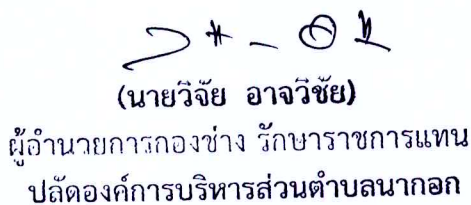 (นายวิจัย อาจวิชัย)
ผู้อำนวยการกองช่าง รักษาราชการแทน
ปลัดองค์การบริหารส่วนตำบลนากอก